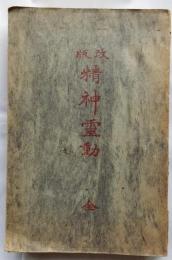 改版
精神靈動
全